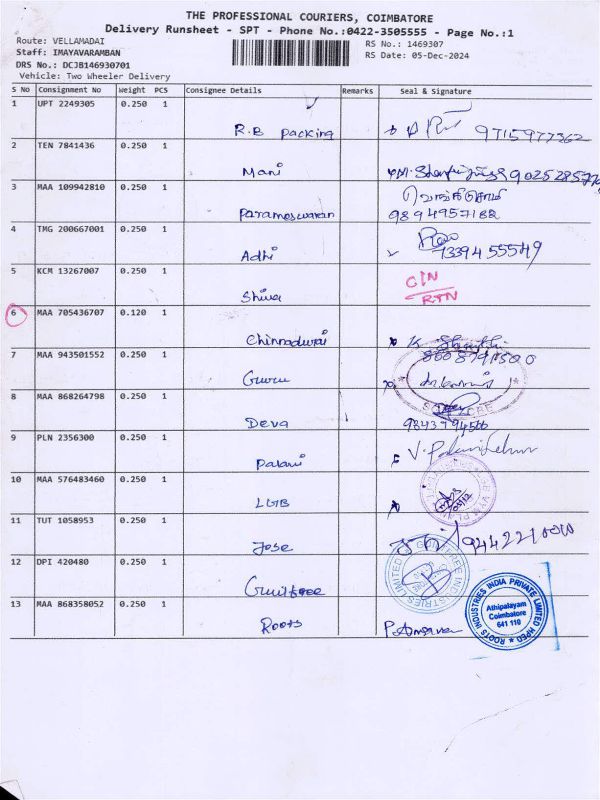 THE PROFESSIONAL COURIERS, COIMBATORE
Delivery Runsheet - SPT - Phone No.:0422-3505555 - Page No.:1
Route: VELLAMADAI
RS No.: 1469307
Staff: IMAYAVARAMBAN
RS Date: 05-Dec-2024
DRS No.: DCJB146930701
Vehicle: Two Wheeler Delivery
S No Consignment No Weight PCS Consignee Details Remarks Seal & Signature
1 UPT 2249305 0.250 1
R.B packing 9715977362
2 TEN 7841436 0.250 1
Mani
3 MAA 109942810 0.250 1
Parameswaran 9894957182
4 TMG 200667001 0.250 1
Adhi
5 KCM 13267007 0.250 1
Shiva
RTN
6 MAA 705436707 0.120 1
Chinnadurai
7 MAA 943501552 0.250 1
Guru
8 MAA 868264798 0.250 1
Deva
9 PLN 2356300 0.250 1
Palani
10 MAA 576483460 0.250 1
LGB
11 TUT 1058953 0.250 1
Jose
12 DPI 420480 0.250 1
13 MAA 868358052 0.250 1
Roots
ROOTS INDUSTRIES INDIA PRIVATE LIMITED HPED
Athipalayam
Coimbatore
641 110